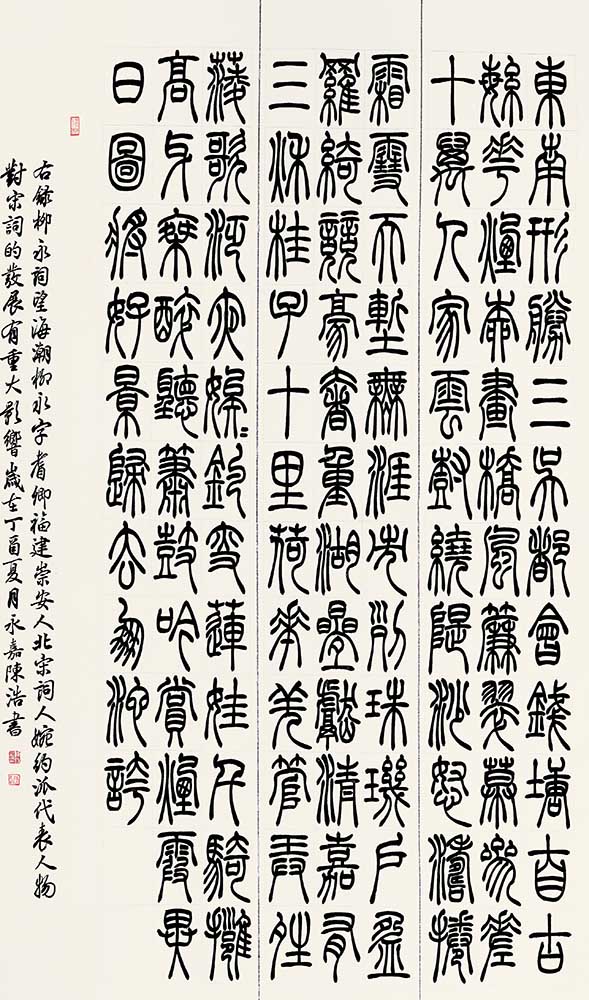 東南形勝三吳都會錢塘自古
繁華煙柳畫橋風簾翠幕參差
十萬人家雲樹繞隄沙怒濤捲
霜雪天塹無涯市列珠璣戶盈
羅綺競豪奢重湖疊巘清嘉有
三秋桂子十里荷花羌管弄晴
菱歌泛夜嬉〻釣叟蓮娃千騎擁
高牙乘醉聽簫鼓吟賞煙霞異
日圖將好景歸去鳳池誇
右錄柳永詞望海潮柳永字耆卿福建崇安人北宋詞人婉約派代表人物
對宋詞的發展有重大影響歲在丁酉夏月永嘉陳浩書